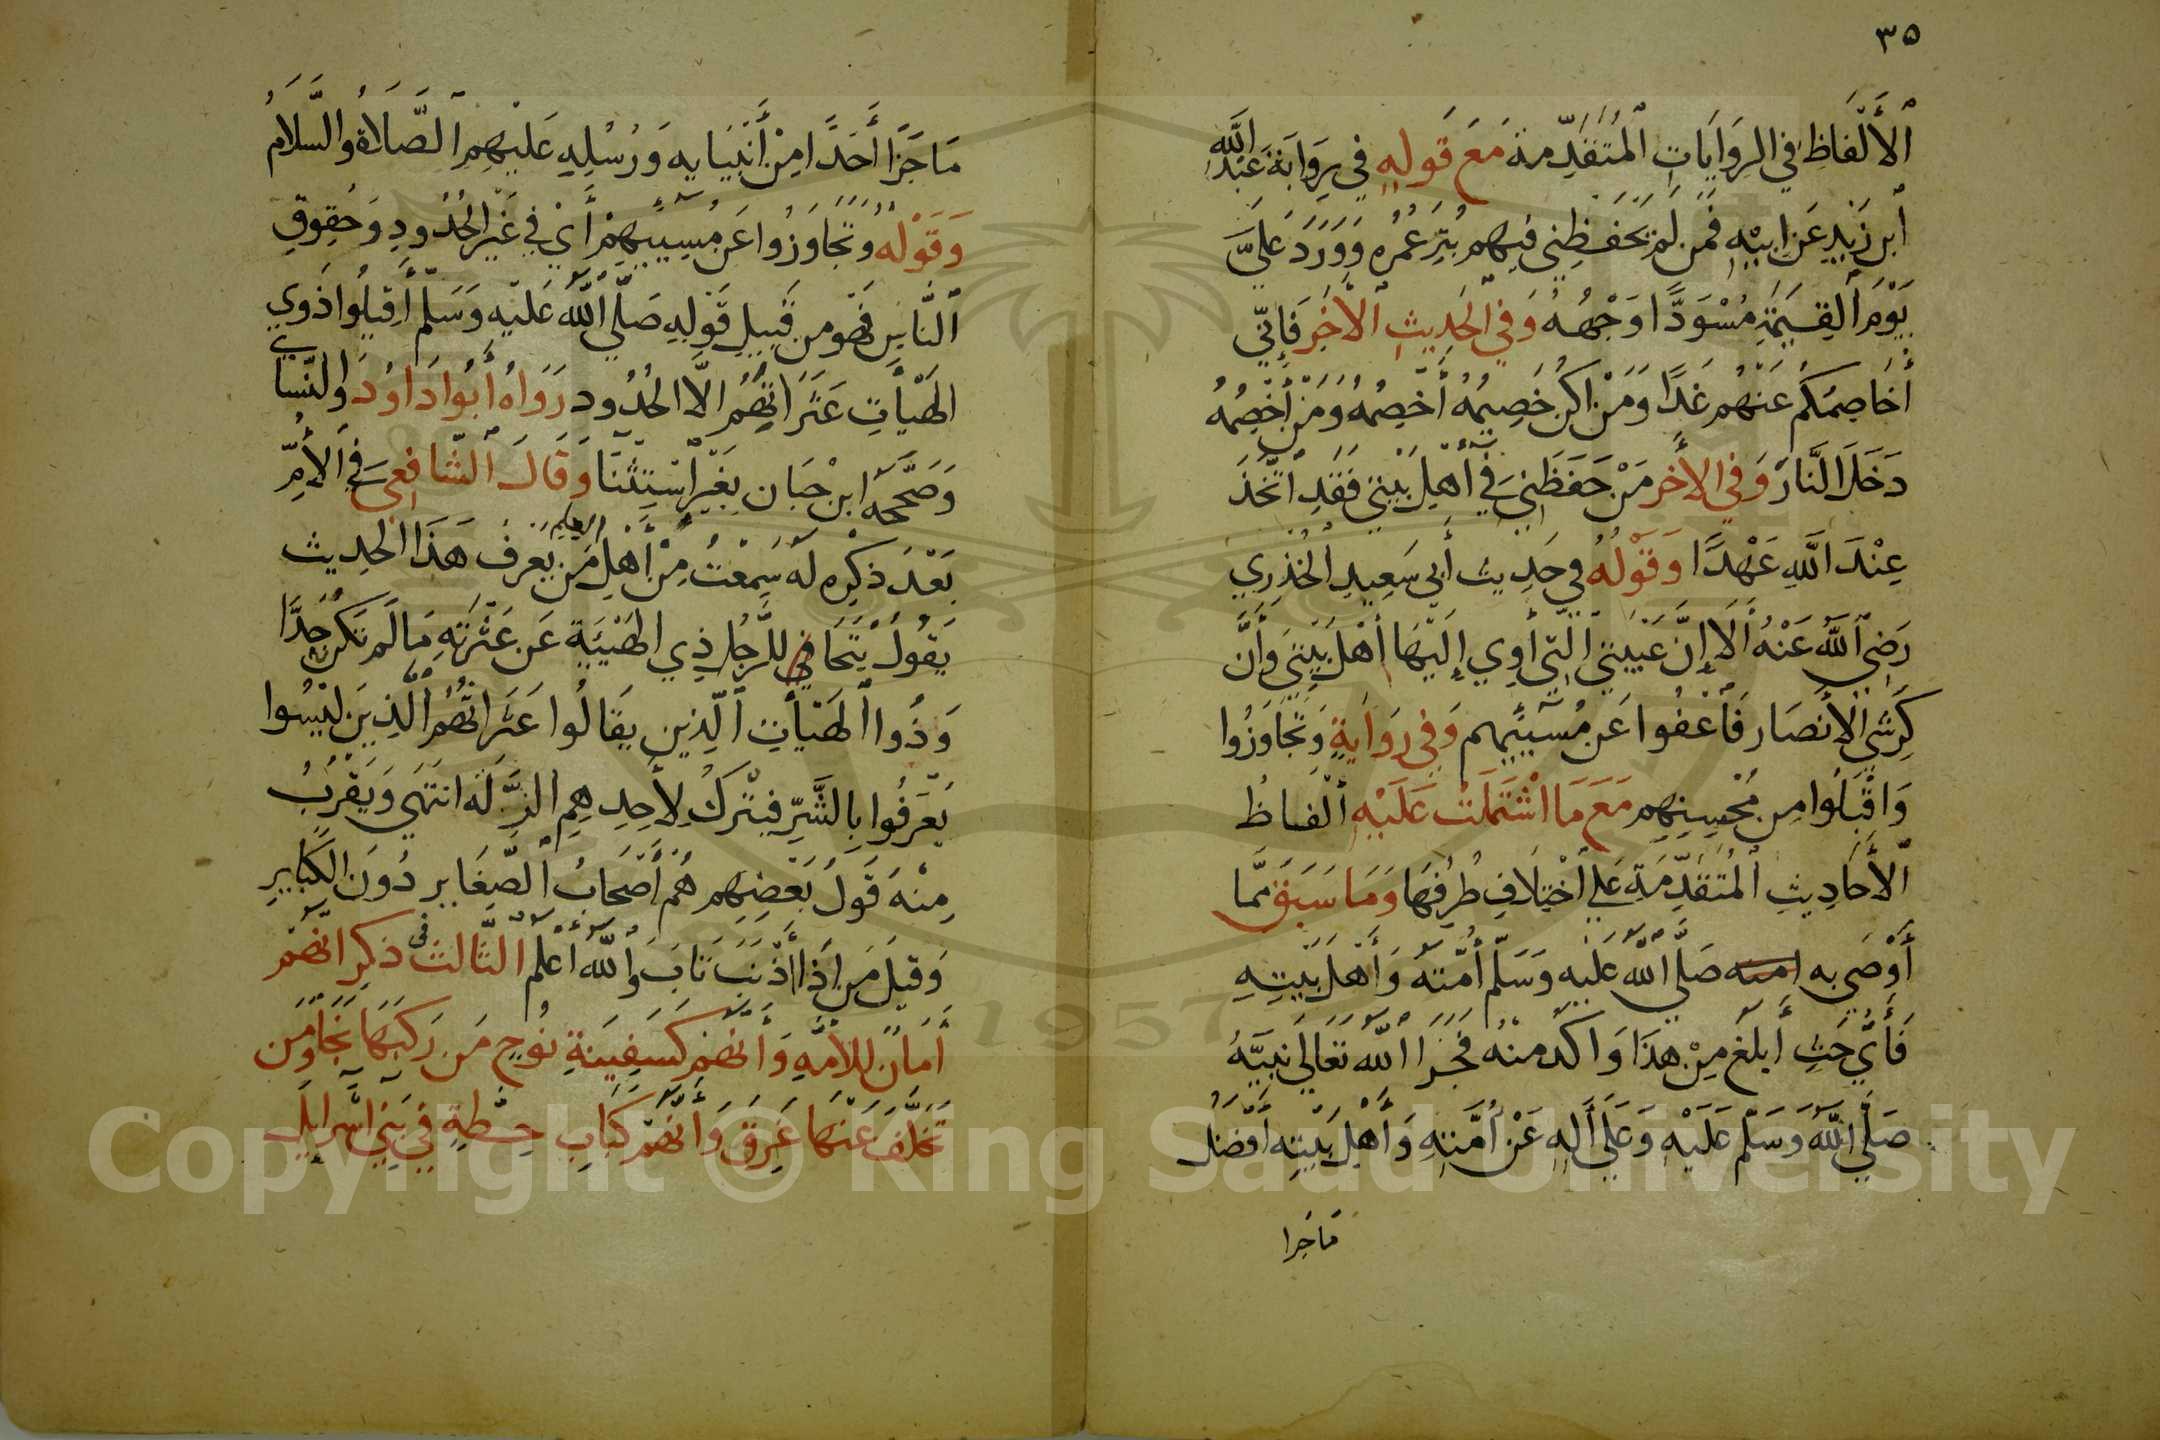 ٣٥
ٱلْأَلْفَاظِ فِي الرِوَايَاتِ ٱلْمُتَقَدِّمَةِ مَعَ قَولِهِ فِي رِوَايَةِ عَبْدِ اللَّهِ
ٱبْنِ زَيْدٍ عَن ابِيْهِ فَمَن لَمْ يَحْفَظنِي فِيهِم بُتِرَ عُمُرُه وَوَرَدَ عَلَيَّ
يَوْمَ ٱلْقِيَمَةِ مُسْوَدًّا وَجْهُهُ وَفِي ٱلْحَدِيثِ ٱلْأَخَرِ فَإِنِّي
أُخَاصِمُكُم عَنْهُم غَدًا وَمَنْ اكُن خَصِيمُهُ أَخْصِمُهُ وَمَنْ أَخْصِمُهُ
دَخَلَ النَّارَ وَفِي الأَخَر مَنْ حَفَظَنِي فِي أهْلِ بَيْتِي فَقَدِ اتَّخَذَ
عِنْدَ اللَّهِ عَهْدًا وَقَوْلُهُ فِي حَدِيث أَبِي سَعِيدٍ الْخُدْرِي
رَضِيَ ٱللَّهُ عَنْهُ أَلَا إِنَّ عَيْبَتِي الَّتِي أَوِي إِلَيْهَا أَهْلُ بَيْتِي وَأَنَّ
كَرِشِي الْأَنصَار فَٱعْفُوا عَن مُسِيئِيهِم وَفِي رِوَايَةٍ وَتَجَاوَزُوا
وَاقْبَلُوا مِن مُحْسِنِهِم مَعَ مَا اشْتَمَلَتْ عَلَيْهِ أَلْفَاظُ
ٱلْأَحَادِيثِ ٱلْمُتَقَدِّمَةِ عَلَى ٱخْتِلَافِ طُرُقِهَا وَمَا سَبَقَ مِمَّا
أَوْصَى بِه امته صَلَّى ٱللَّهُ عَلَيْهِ وَسَلَّمَ أُمَّتَهُ وَأَهْلَ بَيْتِهِ
فَأَيُّ حَثٍ أَبْلَغُ مِنْ هَذَا وَاكَدُ مِنْهُ فَجَزَا اللَّهُ تَعَالَى نَبِيَّهُ
صَلَّى اللَّهُ وَسَلَّمَ عَلَيْهِ وَعَلَى أَلِهِ عَنْ أُمَّتِهِ وَأَهْلِ بَيْتِهِ أَفْضَلُ
مَا جَزا
مَا جَزَا أَحَدًا مِنْ أَنْبِيَايِهِ وَرُسُلِهِ عَلَيْهِم ٱلصَّلَاةُ وَالسَّلَامُ
وَقَوْلُهُ وَتَجَاوَزُوا عَن مُسِيئِيهِمْ أَيْ فِي غَيْرِ الْحُدُودِ وَحُقُوقِ
ٱلنَّاسِ فَهُو مِن قَبِيلِ قَوْلِهِ صَلَّى ٱللَّهُ عَلَيْهِ وَسَلَّم أَقِيلُوا ذَوِي
الهَيْأَتِ عَثَرَاتِهُمْ الَّا الْحُدُود رَوَاهُ أَبُوا دَاوُدَ وَالنَّسَائِي
وَصَحَّحَهُ ابْن حِبَان بِغَيْرِ اسْتِثْنَا وَقَالَ ٱلشَّافِعِي فِي ٱلْأُمِّ
بَعْدَ ذِكْرِه لَهُ سَمِعْتُ مِنْ أَهْلِ العلم مَن يَعْرِفُ هَذَا الْحَدِيث
يَقُولُ يُتَجَافَى لِلرَّجُلِ ذِي الهَيْئَةِ عَن عَثْرَتِهِ مَا لَم تَكُنْ حَدًّا
وَذُوا ٱلهَيْأَتِ ٱلَّذِين يُقَالُوا عَثَرَاتُهُمْ ٱلَّذِينَ لَيْسُوا
يُعْرَفُوا بِالشَّرِّ فَيَتْرُكُ لِأَحَدِهِمِ الزَّلَّةَ انْتَهَى وَيَقْرُبُ
مِنْهُ قَوْلُ بَعْضِهِم هُمْ أَصْحَابُ ٱلصَّغَايِر دُونَ الْكَبَايِرِ
وَقِيلَ مَن إِذَا أَذْنَبَ تَابَ وَٱللَّهُ أَعْلَمُ ٱلثَّالثُ فى ذكر انهُم
أَمَانٌ لِلْأُمَّةِ وَأَنَّهُمْ كَسَفِينَةِ نُوحٍ مَن رَكِبَهَا نَجَا وَمَن
تَخَلَّفَ عَنْهَا غَرِقَ وَأَنَّهُمْ كَبَابِ حِطَّةٍ فِي بَنِي إِسْرَايِلَ
Copyright © King Saud University
1957